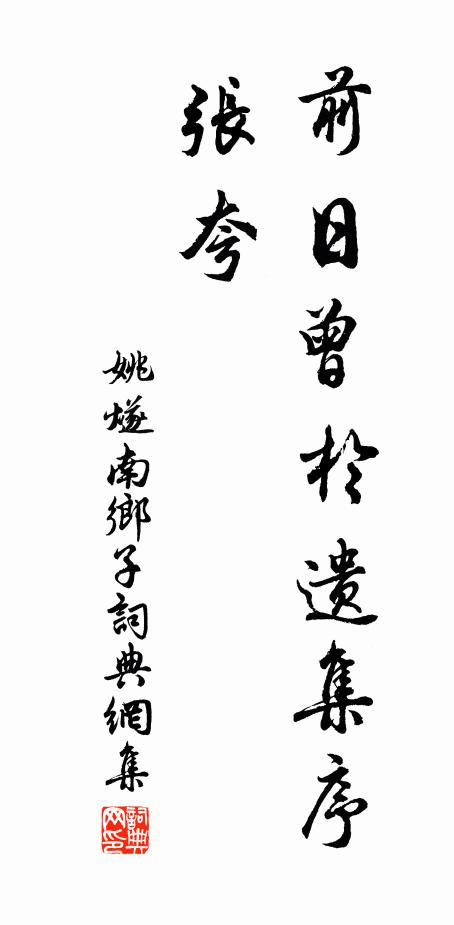 前日曾於遺集序
張夸
姚燧南鄉子詞典網集
詞典网印